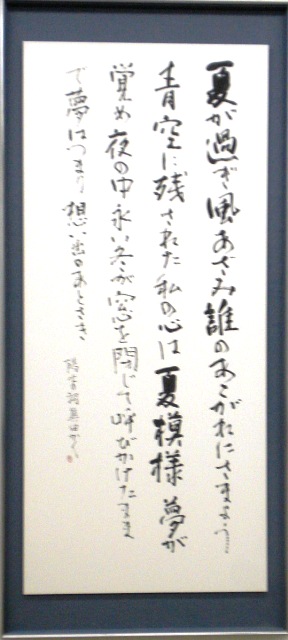 夏が過ぎ風あざみ誰のあこがれにさまよう
青空に残された私の心は夏模様 夢が
覚め夜の中永い冬が窓を閉じて呼びかけたまま
で夢はつまり想い出のあとさき
陽水詞